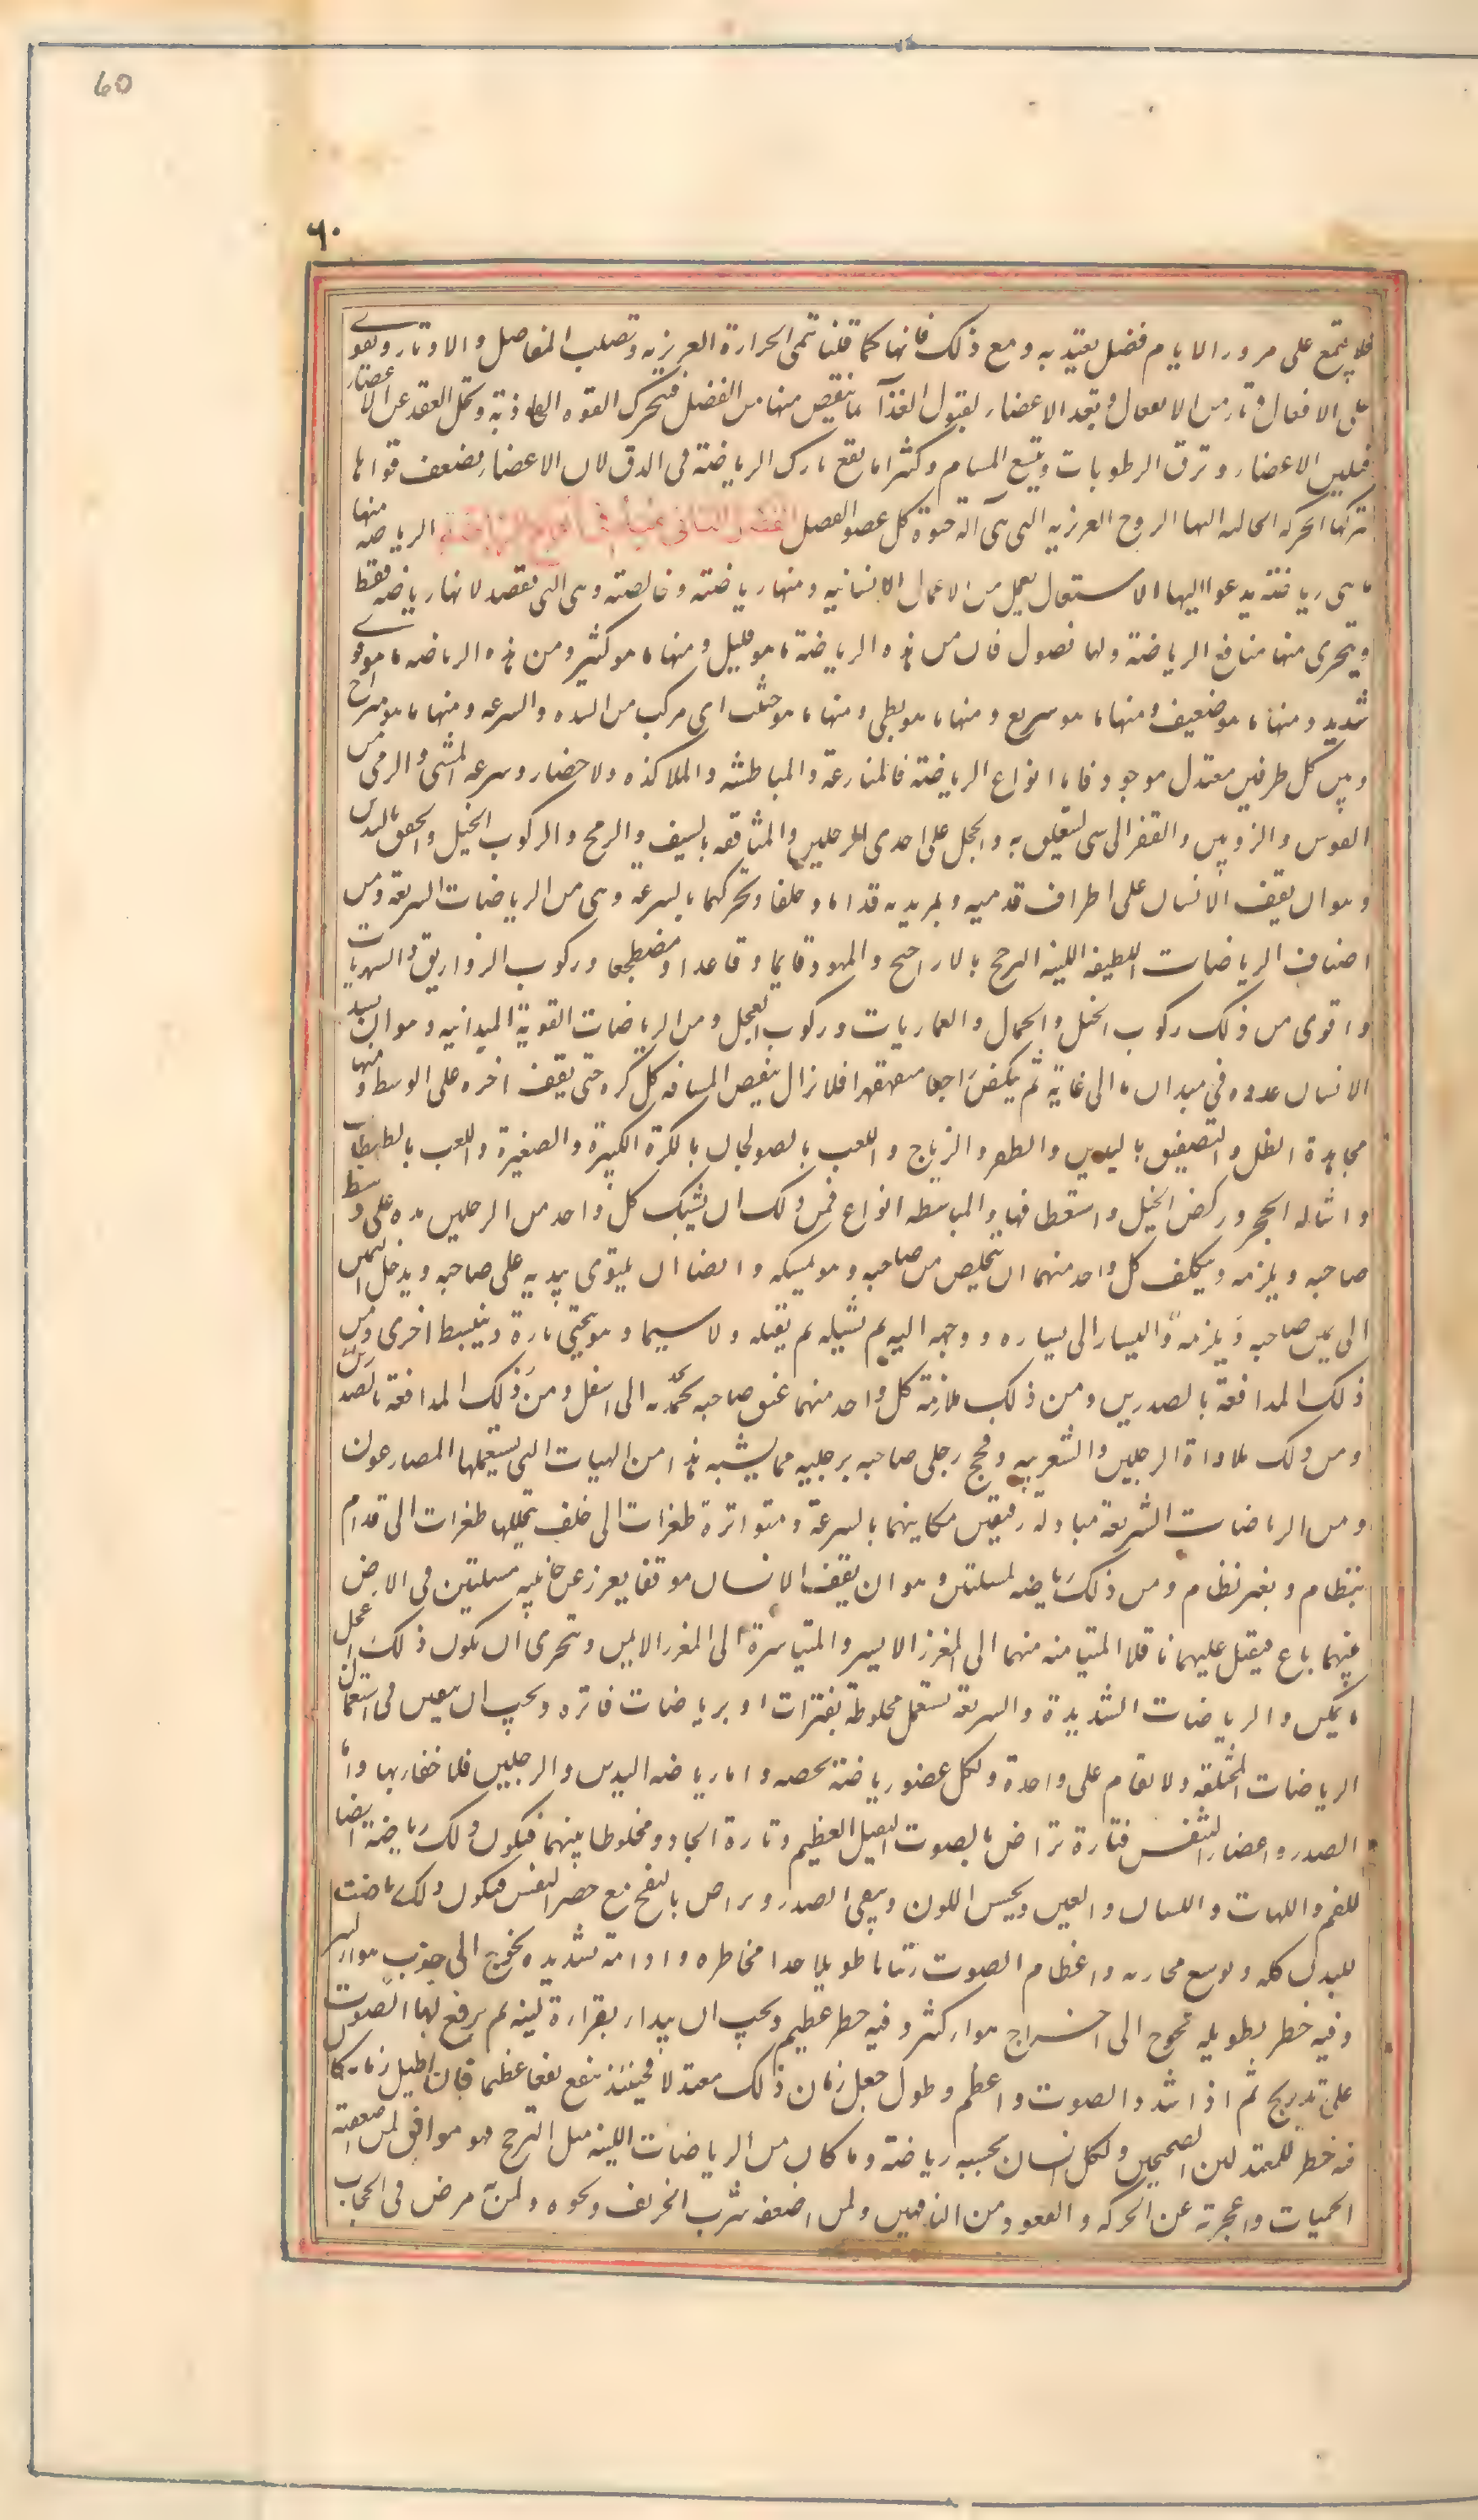 60
٦٠
فلا يجتمع على مرور الايام فضل يعتد به ومع ذلك فانها كما قلنا تنمى الحرارة الغريزيه وتصلب المفاصل والاوتار وتقوى
على الافعال وتامن الانفعال وتعد الاعضاء لقبول الغذآ بما ينقص منها من الفضل فتحرك القوه الجاذبة وتحل العقد عن الاعضاء
فتلين الاعضاء وترق الرطوبات وتتسع المسام وكثيرا ما يقع تارك الرياضة فى الدق لان الاعضاء تضعف قواها
لتركها الحركه الجالبه اليها الروح الغريزيه التى هى آلة حيوة كل عضو الفصل الفصل الثانى فى انواع الرياضة الرياضه منها
ما هى رياضة يدعوا اليها الاستعمال بعمل من الاعمال الانسانيه ومنها رياضة وخالصته وهى التى تقصد لانها رياضه فقط
ويتحرى منها منافع الرياضة ولها فصول فان من هذه الرياضة ما هو قليل ومنها ما هو كثير ومن هذه الرياضه ما هو قوى
شديد ومنها ما هو ضعيف ومنها ما هو سريع ومنها ما هو بطى ومنها ما هو حثيث اى مركب من الشده والسرعه ومنها ما هو متراخ
وبين كل طرفين معتدل موجود فاما انواع الرياضة فالمنازعة والمباطشه والملاكذه ولاحضار وسرعه المشى والرمى من
القوس والزوبين والقفز الى شى ليتعلق به والحجل على احدى الرجلين والمثاقفه بالسيف والرمح والركوب الخيل والخفق باليدين
وهو ان يقف الانسان على اطراف قدميه ويمد يديه قداما وخلفا ويحركهما بالسرعة وهى من الرياضات السريعة ومن
اصناف الرياضات اللطيفه اللينه الترجح بالاراجيح والمهود قايما وقاعدا ومضطجعا وركوب الزواريق والسميريات
واقوى من ذلك ركوب الخيل والجمال والعماريات وركوب العجل ومن الرياضات القوية الميدانيه وهو ان يشد
الانسان عدوه فى ميدان ما الى غاية ثم ينكص راجعا متقهقرا فلا يزال ينقص المسافه كل كره حتى يقف اخره على الوسط ومنها
مجاهدة الظل والتصفيق باليدين والطفر والزجاج واللعب بالصولجان بالكرة الكبيرة والصغيرة واللعب بالطبطاب
واشاله الحجر وركض الخيل واستقطافها والمباسطه انواع فمن ذلك ان يشبك كل واحد من الرجلين يده على وسط
صاحبه ويلزمه ويتكلف كل واحد منهما ان يتخلص من صاحبه وهو يمسكه وايضا ان يلتوى بيديه على صاحبه ويدخل اليمين
الى يمين صاحبه ويلزمه واليسار الى يساره ووجهه اليه ثم يشيله ثم يقلبه ولا سيما وهو ينحنى تارة وينبسط اخرى ومن
ذلك المدافعة بالصدرين ومن ذلك ملازمة كل واحد منهما عنق صاحبه يجذبه الى اسفل ومن ذلك المدافعة بالصدرين
ومن ذلك ملاواة الرجلين والشغربيه وفحج رجلى صاحبه برجليه مما يشبه هذا من الهيات التى يستعملها المصارعون
ومن الرياضات السريعة مبادلة رفيقين مكانيهما بالسرعة ومتواترة طفرات الى خلف يتخللها طفرات الى قدام
بنظام وبغير نظام ومن ذلك رياضه المسلتين وهو ان يقف الانسان موقفا يغرز عن جانبيه مسلتين فى الارض
بينهما باع فيقبل عليهما ناقلا المتيامنه منهما الى المغرز الايسر والمتياسرة الى المغرز الايمن ويتحرى ان يكون ذلك اعجل
ما يمكن والرياضات الشديدة والسريعة تستعمل مخلوطة بفترات او برياضات فاتره ويجب ان يتفنن فى استعمال
الرياضات المختلفه ولا يقام على واحدة ولكل عضو رياضة تخصه واما رياضه اليدين والرجلين فلا خفا بها واما
الصدر واعضاء التنفس فتارة تراض بالصوت الثقيل العظيم وتارة الحاد ومخلوطا بينهما فيكون ذلك رياضة ايضا
للفم واللهات واللسان والعين ويحسن اللون وينقى الصدر ويراض بالنفخ مع حصر النفس فيكون ذلك رياضت
للبدن كله ويوسع مجاريه واعظام الصوت زمانا طويلا جدا مخاطره وادامة شديده يحوج الى جذب هوا كثير
وفيه خطر بطويله تحوج الى اخراج هوا كثير وفيه خطر عظيم ويجب ان يبدا بقراءة لينه ثم يرفع بها الصوت
على تدريج ثم اذا شدد الصوت واعظم وطول جعل زمان ذلك معتدلا فحينئذ ينفع نفعا عظيما فان اطيل زمانه كان
فيه خطر للمعتدلين الصحيحين ولكل انسان بحسبه رياضة وما كان من الرياضات اللينه مثل الترجح فهو موافق لمن اضعفته
الحميات واعجزته عن الحركه والقعود ومن الناقهين ولمن اضعفه شرب الخربق ونحوه ولمن به مرض فى الحجاب